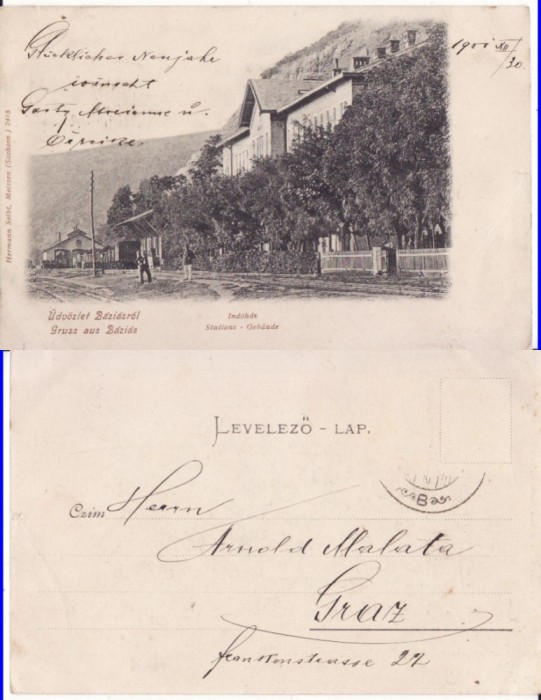 Glückliches Neujahr
wünscht
1901 XII/30.
Hermann Seibt, Meissen (Sachsen)
Üdvözlet Báziásról
Gruss aus Báziás
Indóház
Stations - Gebäude
LEVELEZŐ - LAP.
Czim Herrn
Arnold Malata
Graz
strasse 27